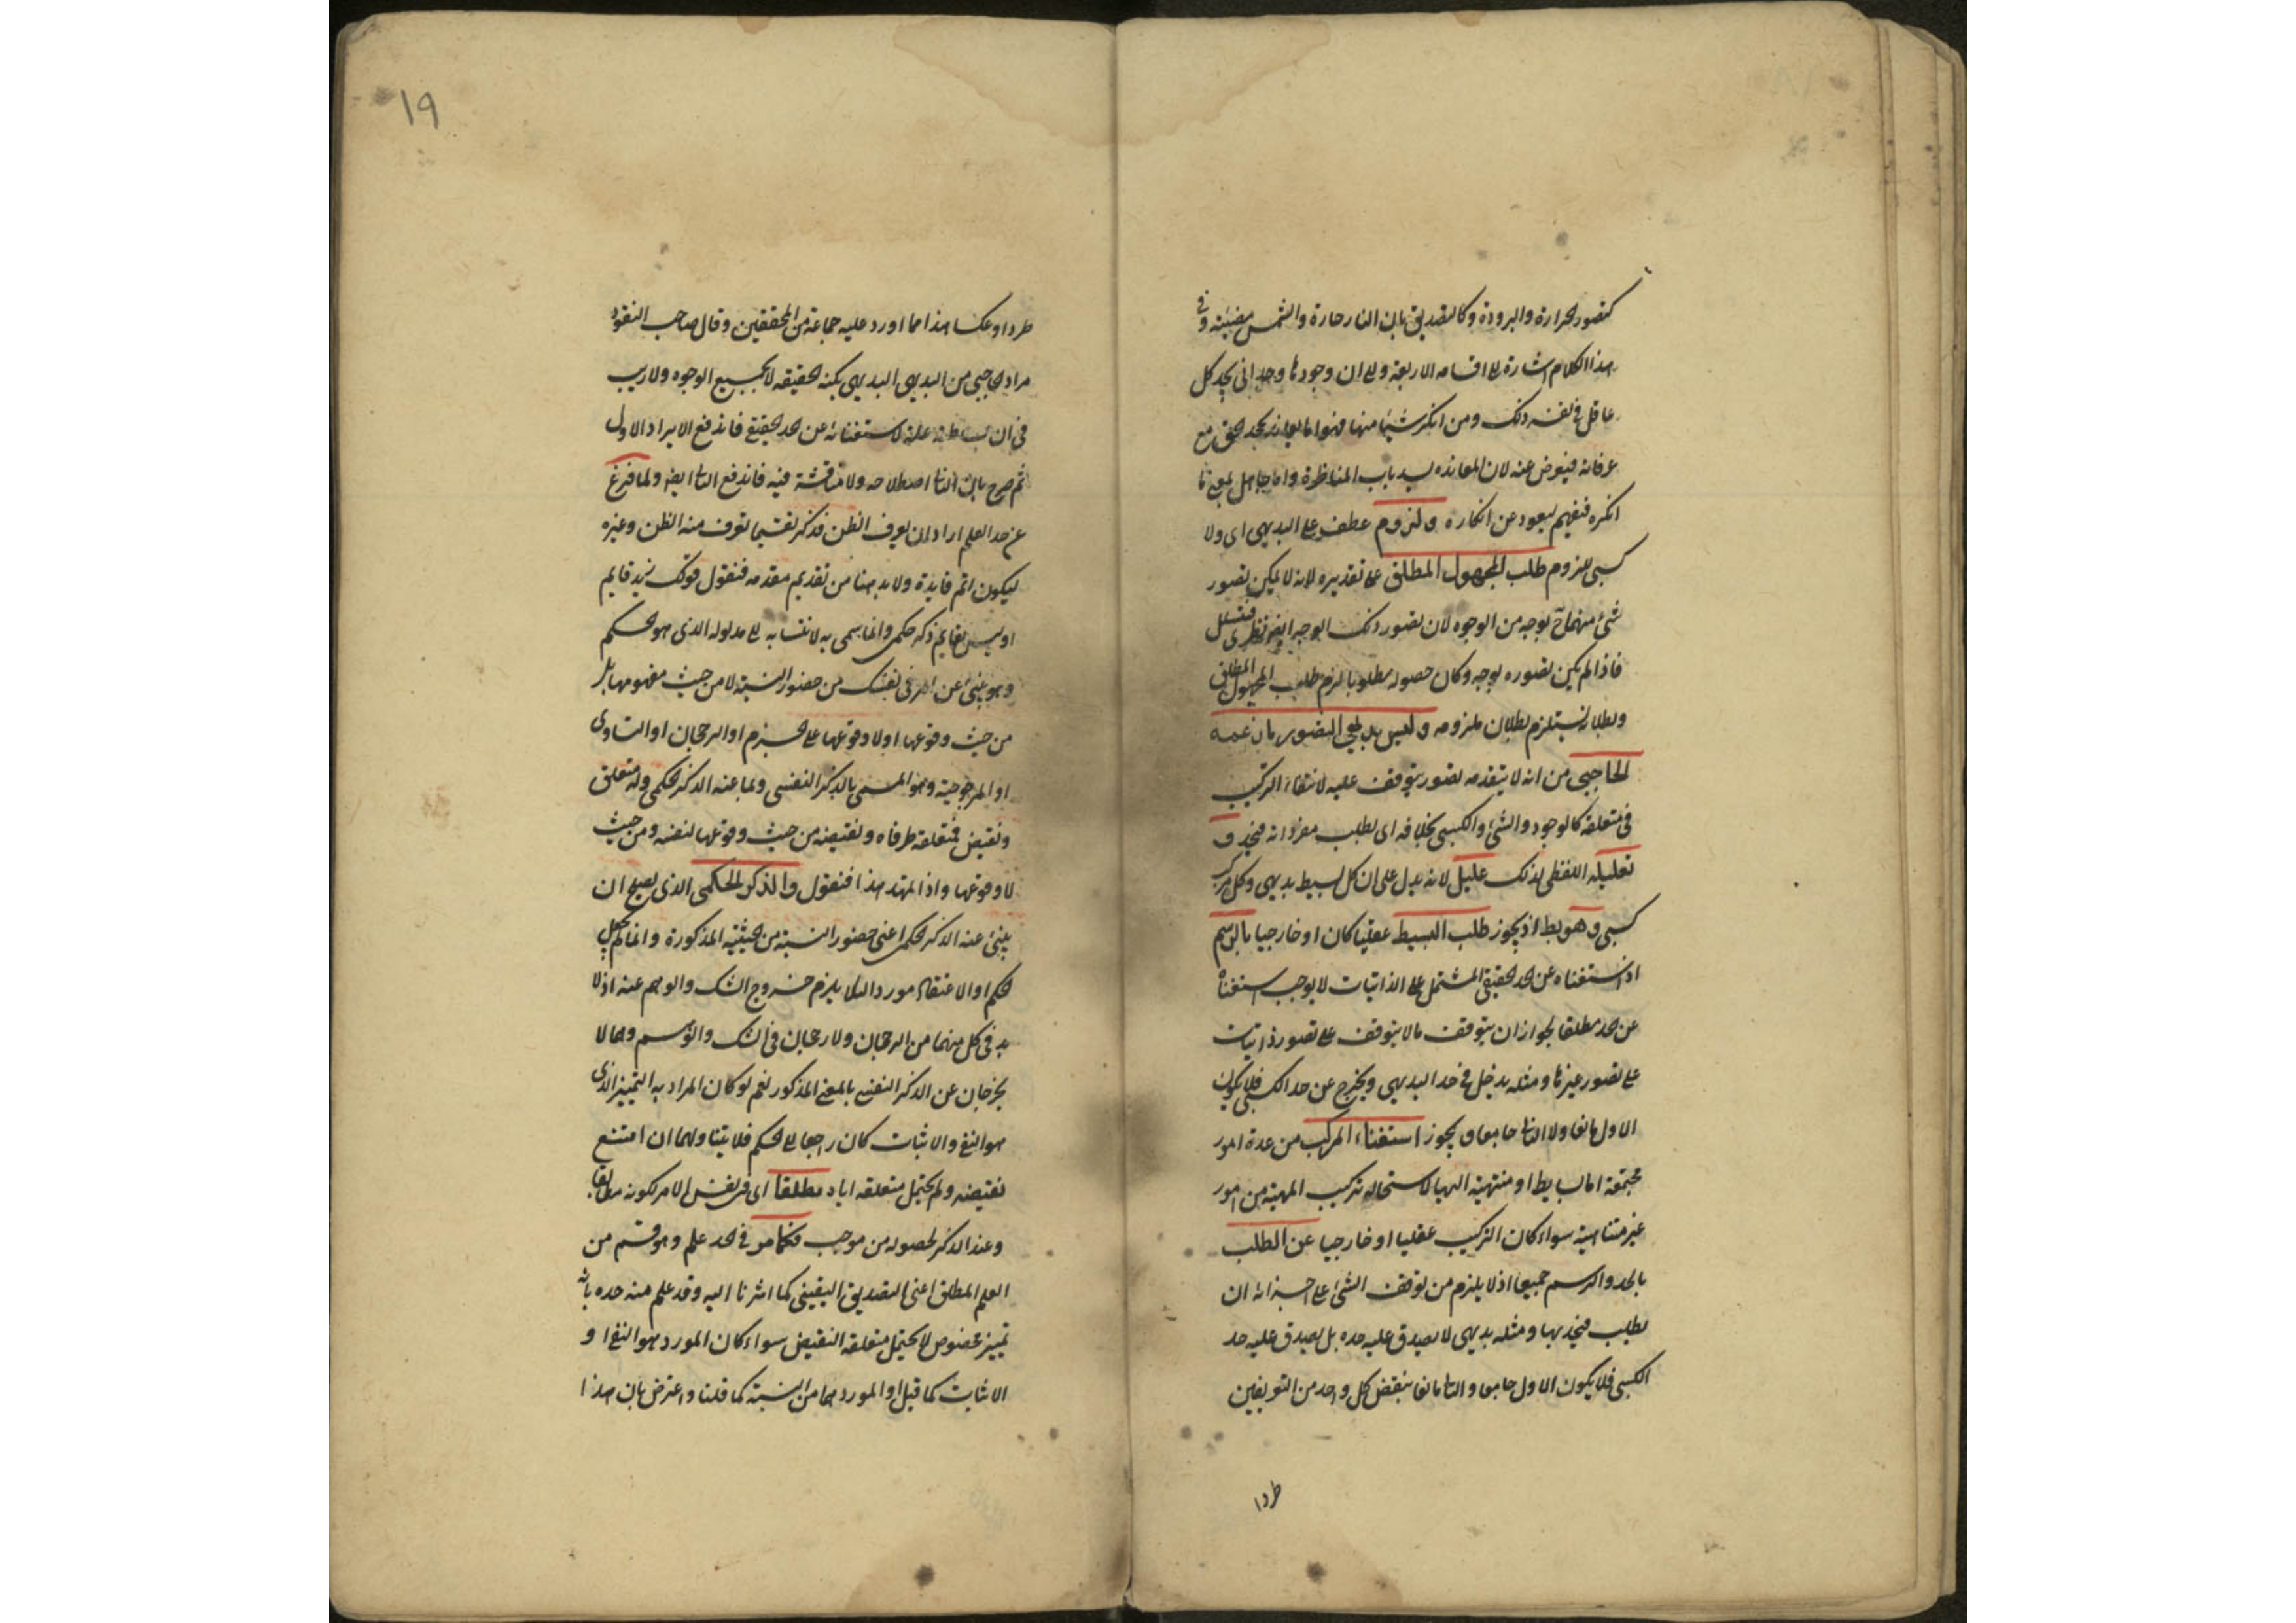 كتصور الحرارة والبرودة وكالتصديق بان النار حارة والشمس مضيئة وفى
هذا الكلام اشارة الى اقسامه الاربعة والى ان وجودها وجدانى يجد كل
عاقل فى نفسه ذلك ومن انكر شيئا منها فهو اما معاند يجحد الحق مع
عرفانه فيعرض عنه لان المعانده يسد باب المناظرة واما جاهل بمعنى ما
انكره فيفهم ليعود عن انكاره ولزوم عطف على البديهى اى ولا
كسبى للزوم طلب المجهول المطلق على تقديره لانه لا يمكن تصور
شئ منهما ح بوجه من الوجوه لان تصور ذلك الوجه ايضا نظرى فيتسلسل
فاذا لم يكن تصوره بوجه وكان حصوله مطلوبا لزم طلب المجهول المطلق
وبطلانه يستلزم بطلان ملزومه وليس بديهى التصور ما زعمه
الحاجبى من انه لا يتقدمه تصور يتوقف عليه لانتفاء التركيب
فى متعلقه كالوجود والشئ والكسبى بخلافه اى يطلب مفرداته فيحد و
تعليله اللفظى لذلك عليل لانه يدل على ان كل بسيط بديهى وكل مركب
كسبى وهو بط اذ يجوز طلب البسيط عقليا كان او خارجيا بالرسم
اذ استغناه عن الحد الحقيقى المشتمل على الذاتيات لا يوجب استغناه
عن الحد مطلقا لجواز ان يتوقف ما لا يتوقف على تصور ذاتيات
على تصور غيرها ومثله يدخل فى حد البديهى ويخرج عن حد الكسبى فلا يكون
الاول مانعا ولا الثانى جامعا و يجوز استغناء المركب من عدة امور
مجتمعة اما بسايط او منتهية اليها لاستحالة تركيب المهية من امور
غير متناهية سواء كان التركيب عقليا او خارجيا عن الطلب
بالحد والرسم جميعا اذ لا يلزم من توقف الشئ على اجزائه ان
يطلب فيحد بها ومثله بديهى لا يصدق عليه حده بل يصدق عليه حد
الكسبى فلا يكون الاول جامعا والثانى مانعا ينقض كل واحد من التعريفين
طردا
١٩
طردا وعكسا هذا مما اورد عليه جماعة من المحققين وقال صاحب النقود
مراد الحاجبى من البديهى البديهى بكنه الحقيقه لا بجميع الوجوه ولا ريب
فى ان بساطته علة لاستغنائه عن الحد الحقيقى فاندفع الايراد الاول
ثم صرح بان الثانى اصطلاحه ولا مناقشة فيه فاندفع الثانى ايضا ولما فرغ
عن حد العلم اراد ان يعرف الظن فذكر تقسيما تعرف منه الظن وغيره
ليكون اتم فايدة ولا بد هنا من تقديم مقدمه فنقول قولك زيد قايم
او ليس بقايم ذكر حكمى وانما سمى به لانتسابه الى مدلوله الذى هو الحكم
وهو ينبئ عن امر فى نفسك من حضور النسبة لا من حيث مفهومها بل
من حيث وقوعها او لا وقوعها على الجزم او الرجحان او التساوى
او المرجوحية وهو المسمى بالذكر النفسى وبما عنه الذكر الحكمى وله متعلق
ونقيض فمتعلقه طرفاه ونقيضه من حيث وقوعها لنفسه ومن حيث
لا وقوعها واذا تمهد هذا فنقول والذكر الحكمى الذى يصح ان
ينبئ عنه الذكر الحكمى اعنى حضور النسبة من الحيثية المذكورة وانما لم يجعل
الحكم او الاعتقاد مورد اللا يلزم خروج الشك والوهم عنه اذ لا
بد فى كل منهما من الرجحان ولا رجحان فى الشك والوهم وهما لا
يخرجان عن الذكر النفسى بالمعنى المذكور نعم لو كان المراد به التمييز الذى
هو النفى والاثبات كان راجعا الى الحكم فلا يتناولهما ان امتنع
نقيضه ولم يحتمل متعلقه اياه مطلقا اى فى نفس الامر لكونه مطابقا
وعند الذكر لحصوله من موجب فكما مر فى الحد علم وهو قسم من
العلم المطلق اعنى التصديق اليقينى كما اشرنا اليه وقد علم منه حده بانه
تمييز مخصوص لا يحتمل متعلقه النقيض سواء كان المورد هو النفى او
الاثبات كما قيل او المورد هما من النسبة كما قلنا واعترض بان هذا